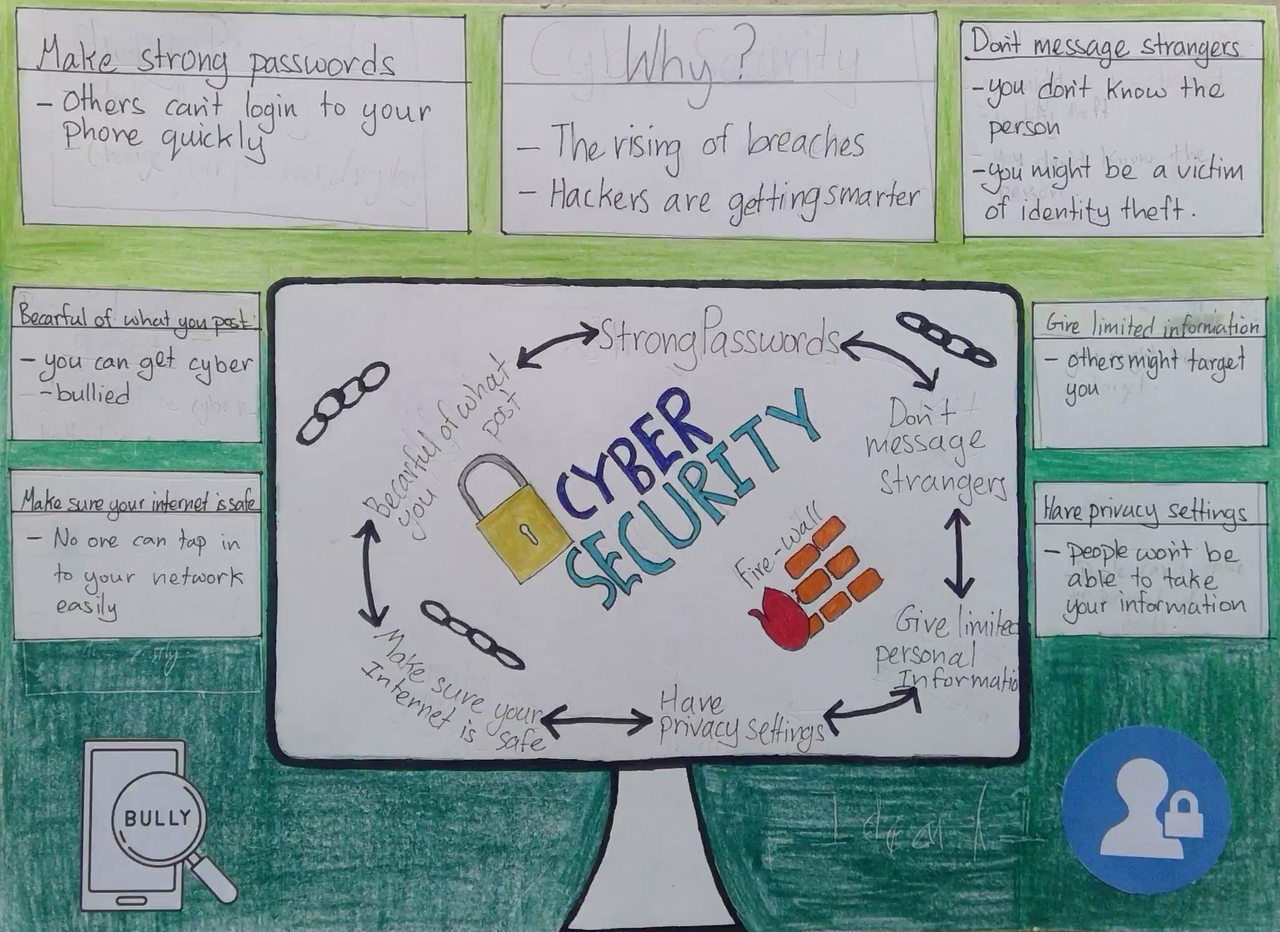 Make strong passwords
- Others can't login to your
phone quickly
Why?
- The rising of breaches
- Hackers are getting smarter
Don't message strangers
- you don't know the
person
- you might be a victim
of identity theft.
Becarful of what you post
- you can get cyber
- bullied
Make sure your internet is safe
- No one can tap in
to your network
easily
Strong Passwords
Becarful of what
you post
CYBER
SECURITY
Don't
message
strangers
Fire-wall
Give limited
personal
Informatio
Make sure your
Internet is safe
Have
privacy settings
Give limited information
- others might target
you
Have privacy settings
- people won't be
able to take
your information
BULLY